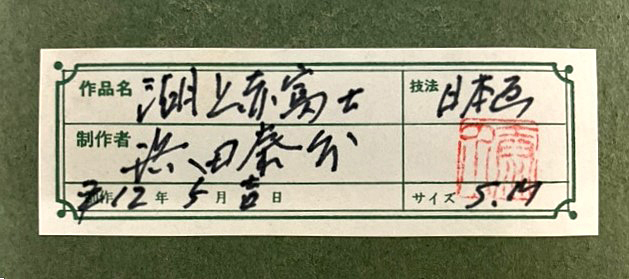 作品名 湖上赤富士 技法 日本画
制作者 浜田泰介
平12年5月吉日 サイズ S.M